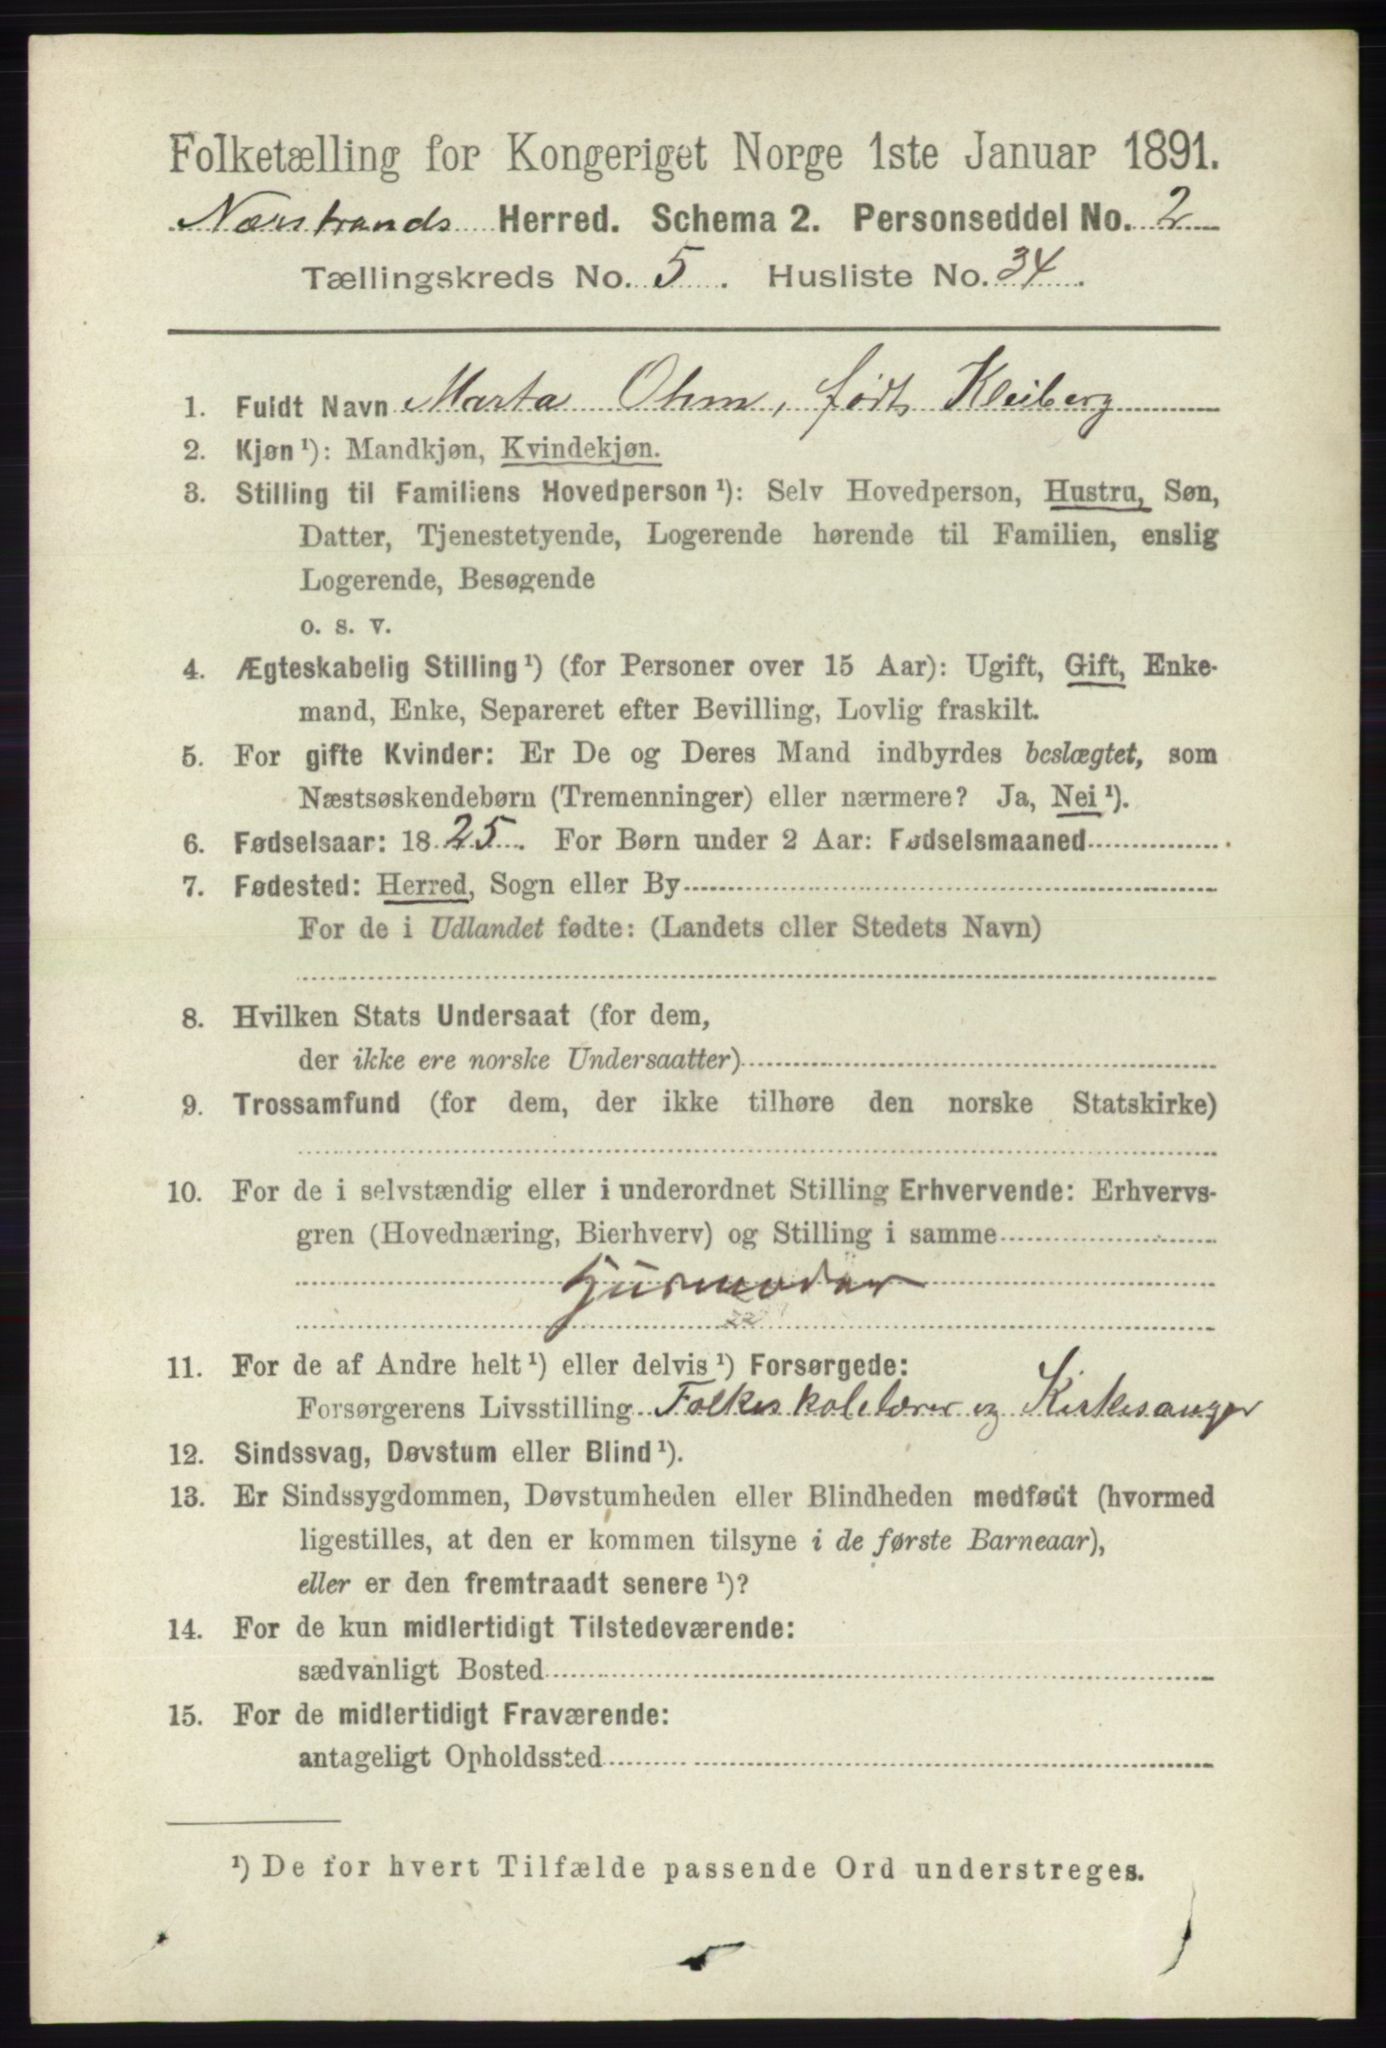 Folketælling for Kongeriget Norge 1ste Januar 1891.
Nærstrands Herred. Schema 2. Personseddel No. 2
Tællingskreds No. 5. Husliste No. 34.
1. Fuldt Navn Marta Ohm, født Kleiberg
2. Kjøn ¹): Mandkjøn, Kvindekjøn.
3. Stilling til Familiens Hovedperson ¹): Selv Hovedperson, Hustru, Søn,
Datter, Tjenestetyende, Logerende hørende til Familien, enslig
Logerende, Besøgende
o. s. v.
4. Ægteskabelig Stilling ¹) (for Personer over 15 Aar): Ugift, Gift, Enke-
mand, Enke, Separeret efter Bevilling, Lovlig fraskilt.
5. For gifte Kvinder: Er De og Deres Mand indbyrdes beslægtet, som
Næstsøskendebørn (Tremenninger) eller nærmere? Ja, Nei ¹).
6. Fødselsaar: 1825. For Børn under 2 Aar: Fødselsmaaned
7. Fødested: Herred, Sogn eller By
For de i Udlandet fødte: (Landets eller Stedets Navn)
8. Hvilken Stats Undersaat (for dem,
der ikke ere norske Undersaatter)
9. Trossamfund (for dem, der ikke tilhøre den norske Statskirke)
10. For de i selvstændig eller i underordnet Stilling Erhvervende: Erhvervs-
gren (Hovednæring, Bierhverv) og Stilling i samme
Husmoder
22
11. For de af Andre helt ¹) eller delvis ¹) Forsørgede:
Forsørgerens Livsstilling Folkeskolelærer og Kirkesanger
12. Sindssvag, Døvstum eller Blind ¹).
13. Er Sindssygdommen, Døvstumheden eller Blindheden medfødt (hvormed
ligestilles, at den er kommen tilsyne i de første Barneaar),
eller er den fremtraadt senere ¹)?
14. For de kun midlertidigt Tilstedeværende:
sædvanligt Bosted
15. For de midlertidigt Fraværende:
antageligt Opholdssted
¹) De for hvert Tilfælde passende Ord understreges.